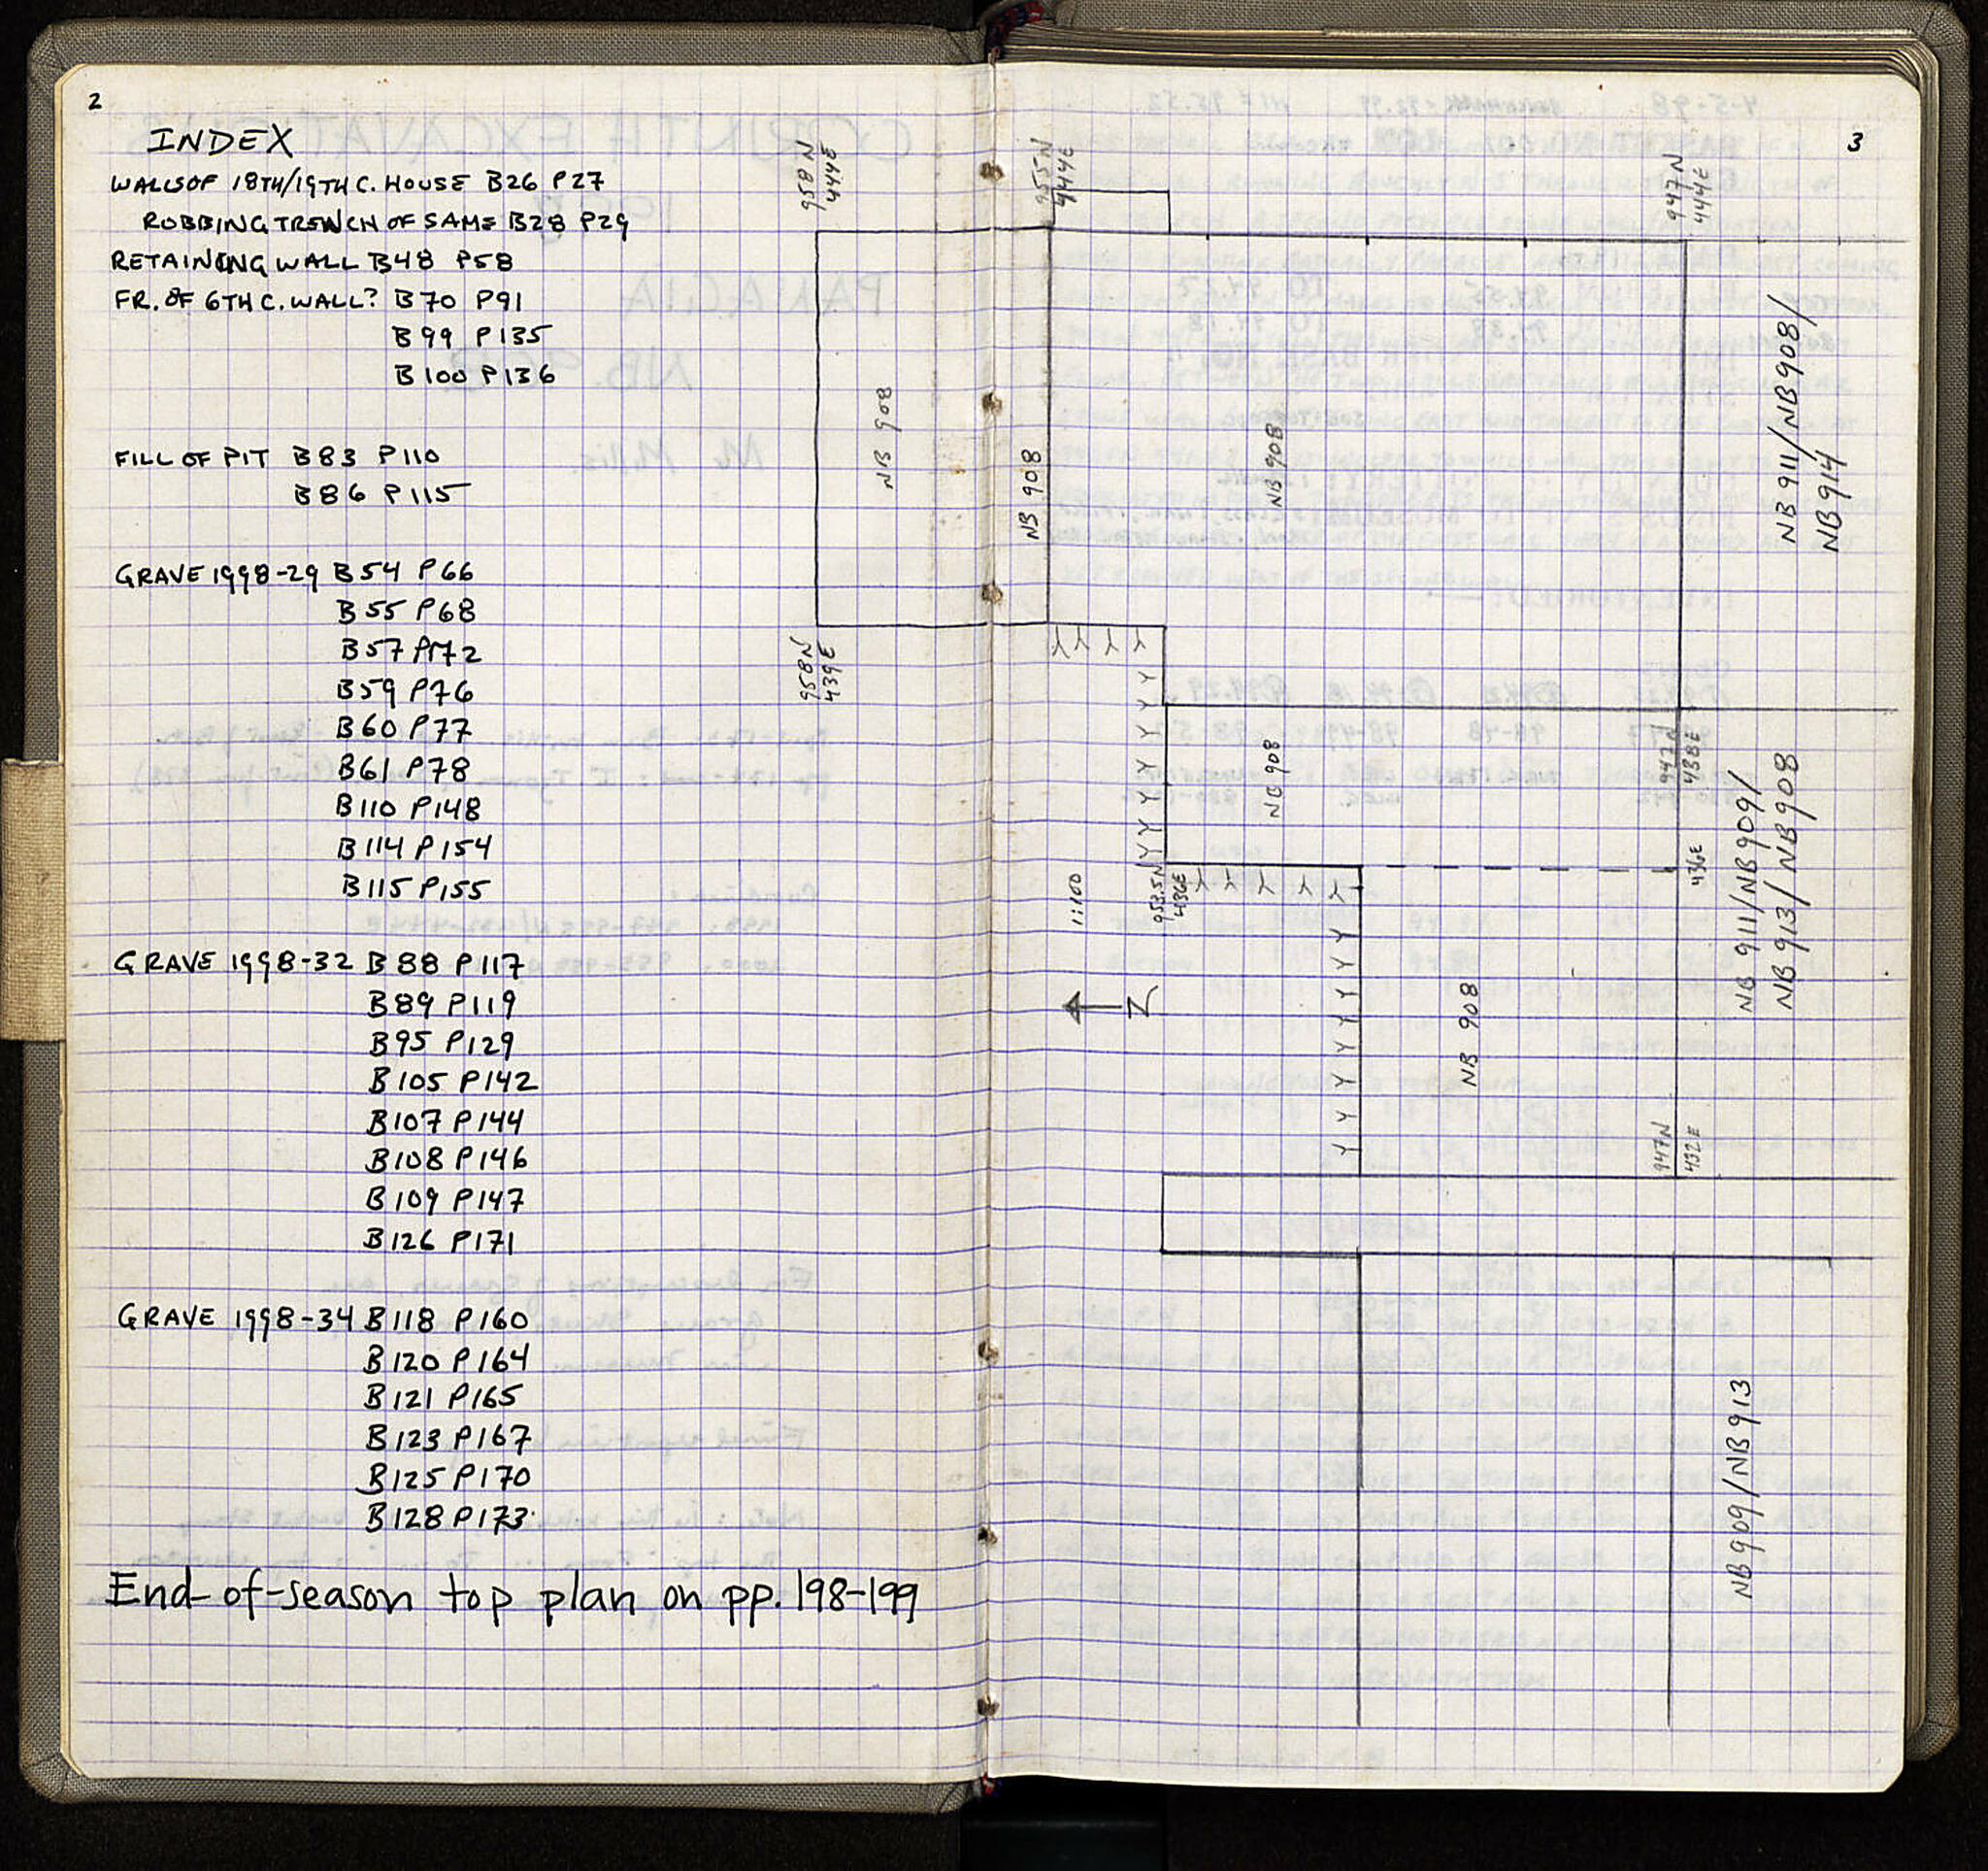 2
INDEX
WALLS OF 18TH/19TH C. HOUSE B26 P27
ROBBING TRENCH OF SAME B28 P29
RETAINING WALL B48 P58
FR. OF 6TH C. WALL? B70 P91
B99 P135
B100 P136
FILL OF PIT B83 P110
B86 P115
GRAVE 1998-29 B54 P66
B55 P68
B57 P72
B59 P76
B60 P77
B61 P78
B110 P148
B114 P154
B115 P155
GRAVE 1998-32 B88 P117
B89 P119
B95 P129
B105 P142
B107 P144
B108 P146
B109 P147
B126 P171
GRAVE 1998-34 B118 P160
B120 P164
B121 P165
B123 P167
B125 P170
B128 P173
End-of-season top plan on pp. 198-199
3
958N
444E
955N
444E
947N
444E
NB 908
NB 908
NB 908
NB 911/NB908/
NB914
958N
439E
NB 908
947N
438E
1:100
953.5N
436E
436E
N
NB 908
NB 911/NB909/
NB913/NB908
947N
432E
NB909/NB913